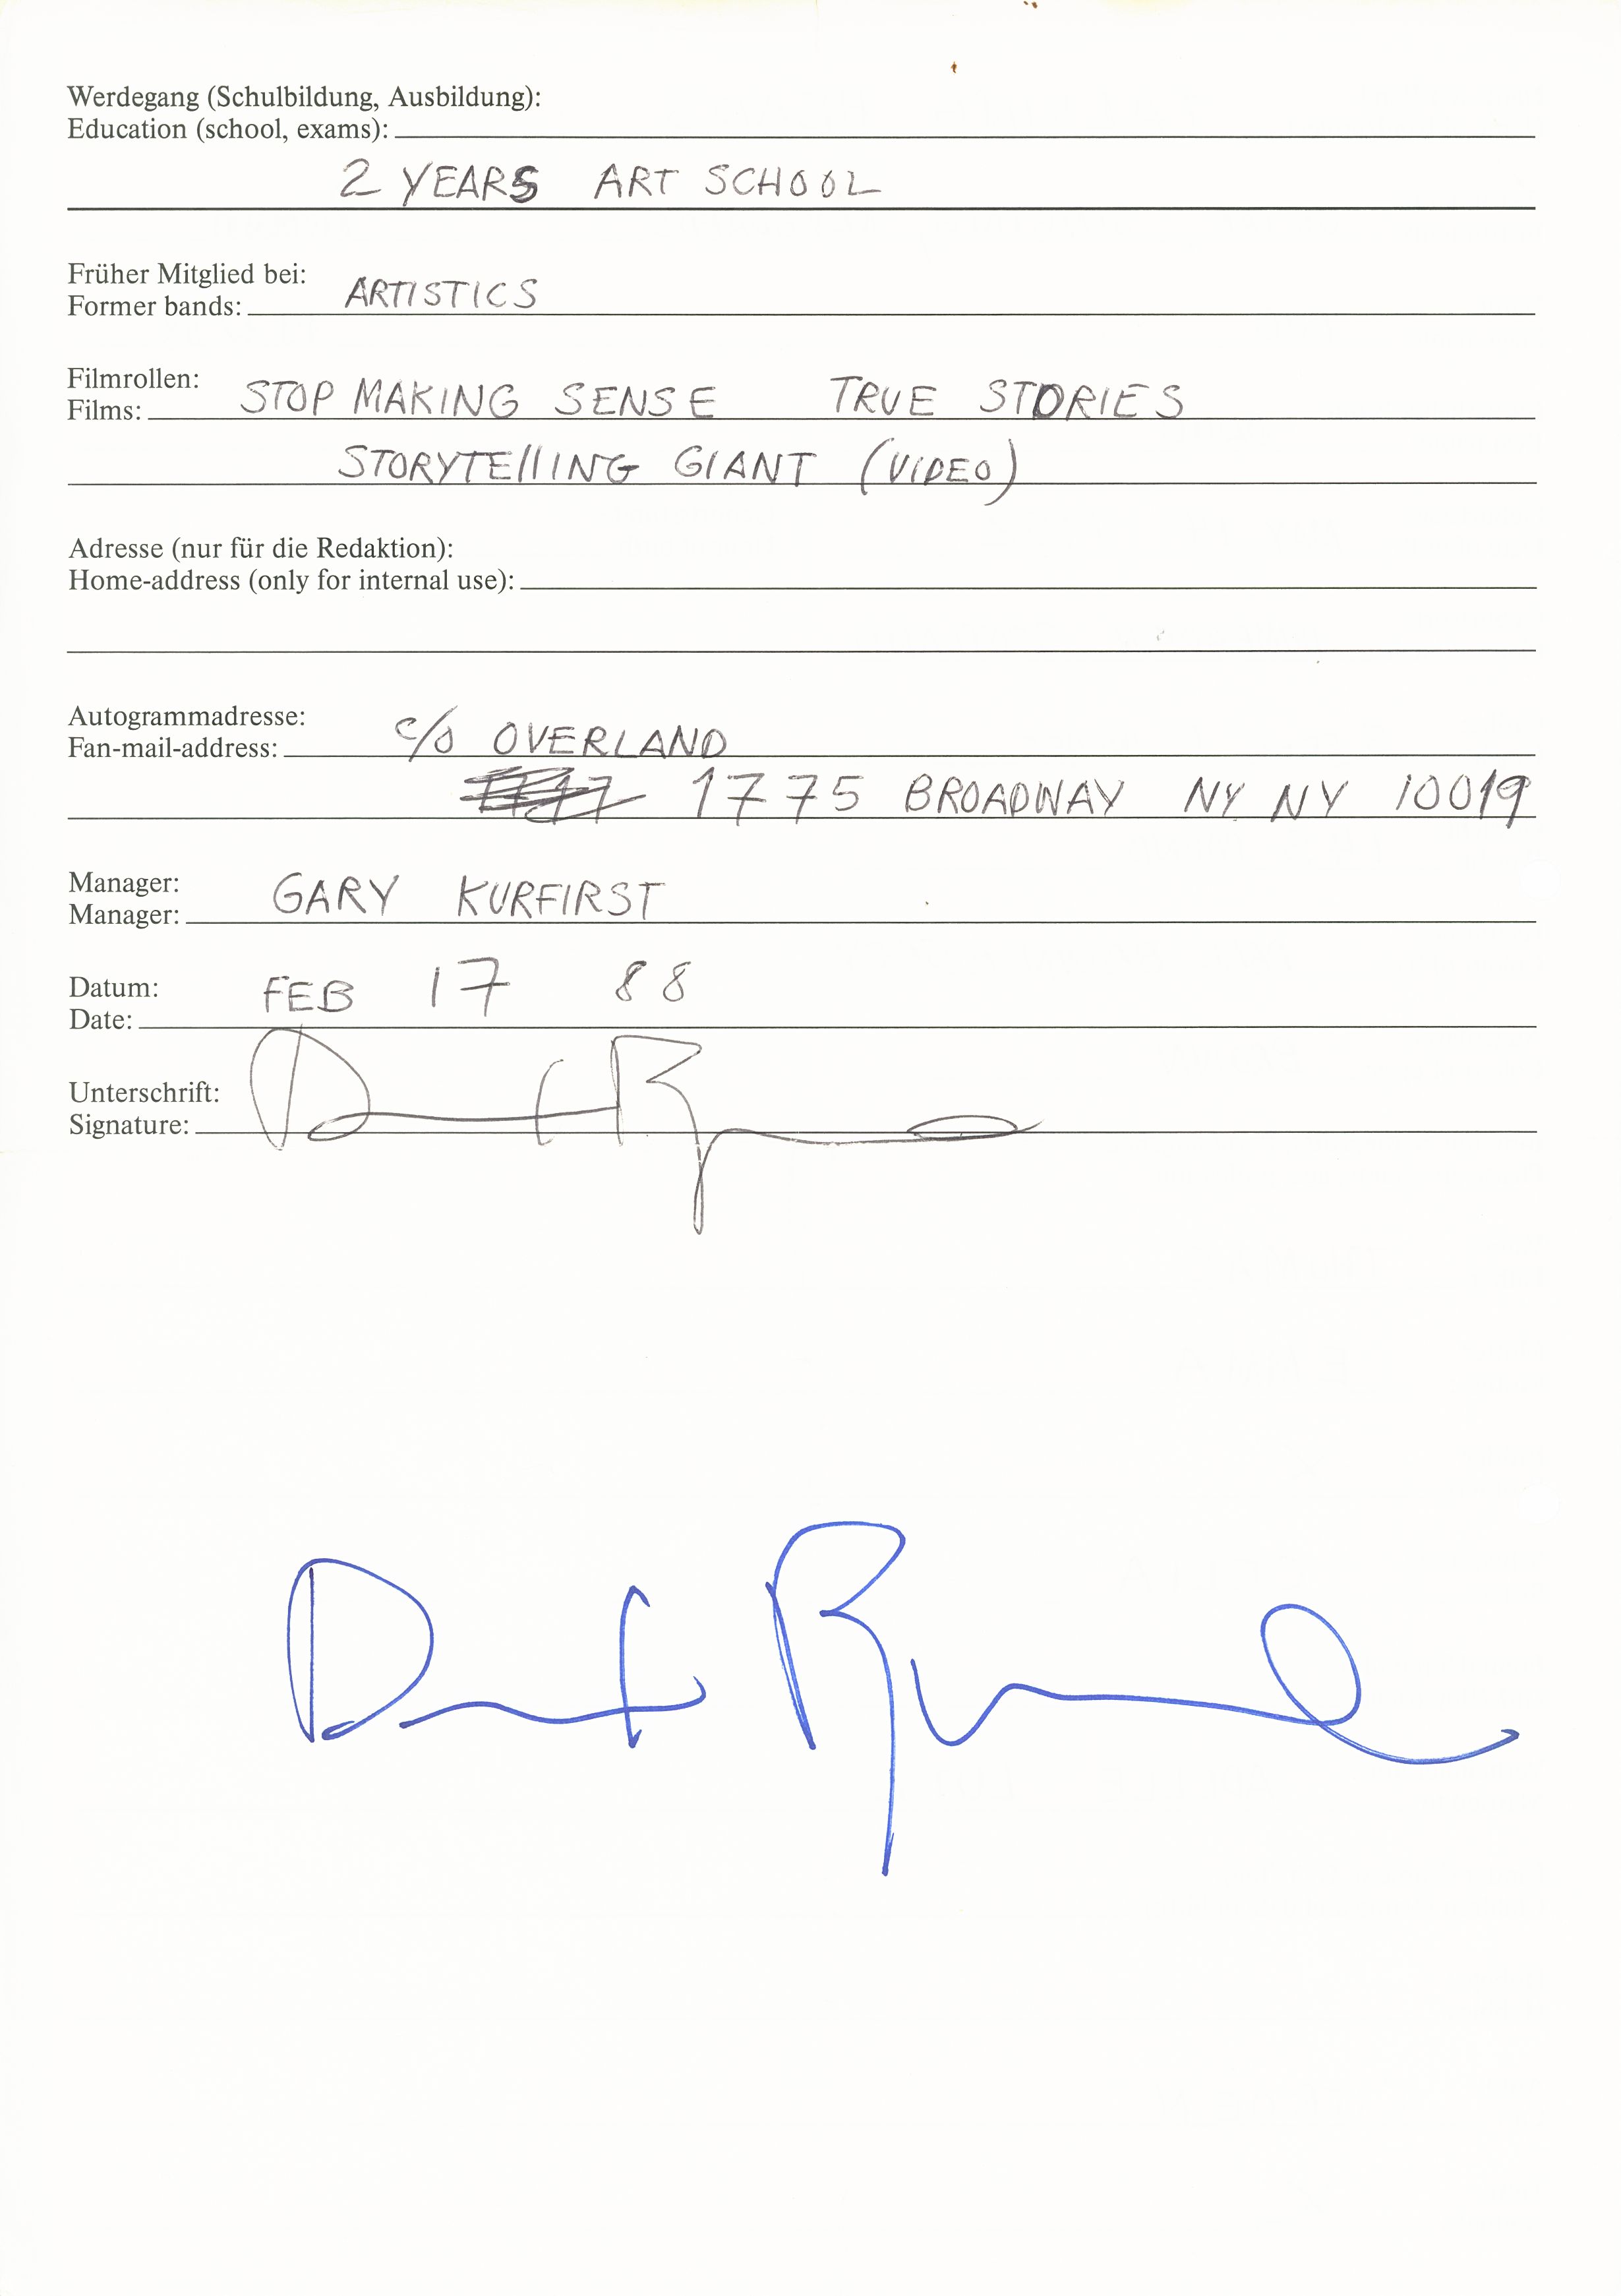 Werdegang (Schulbildung, Ausbildung):
Education (school, exams):
2 YEARS ART SCHOOL
Früher Mitglied bei:
Former bands: ARTISTICS
Filmrollen:
Films: STOP MAKING SENSE TRUE STORIES
STORYTEllING GIANT (VIDEO)
Adresse (nur für die Redaktion):
Home-address (only for internal use):
Autogrammadresse:
Fan-mail-address: c/o OVERLAND
1775 BROADWAY NY NY 10019
Manager:
Manager: GARY KURFIRST
Datum:
Date: FEB 17 88
Unterschrift:
Signature: